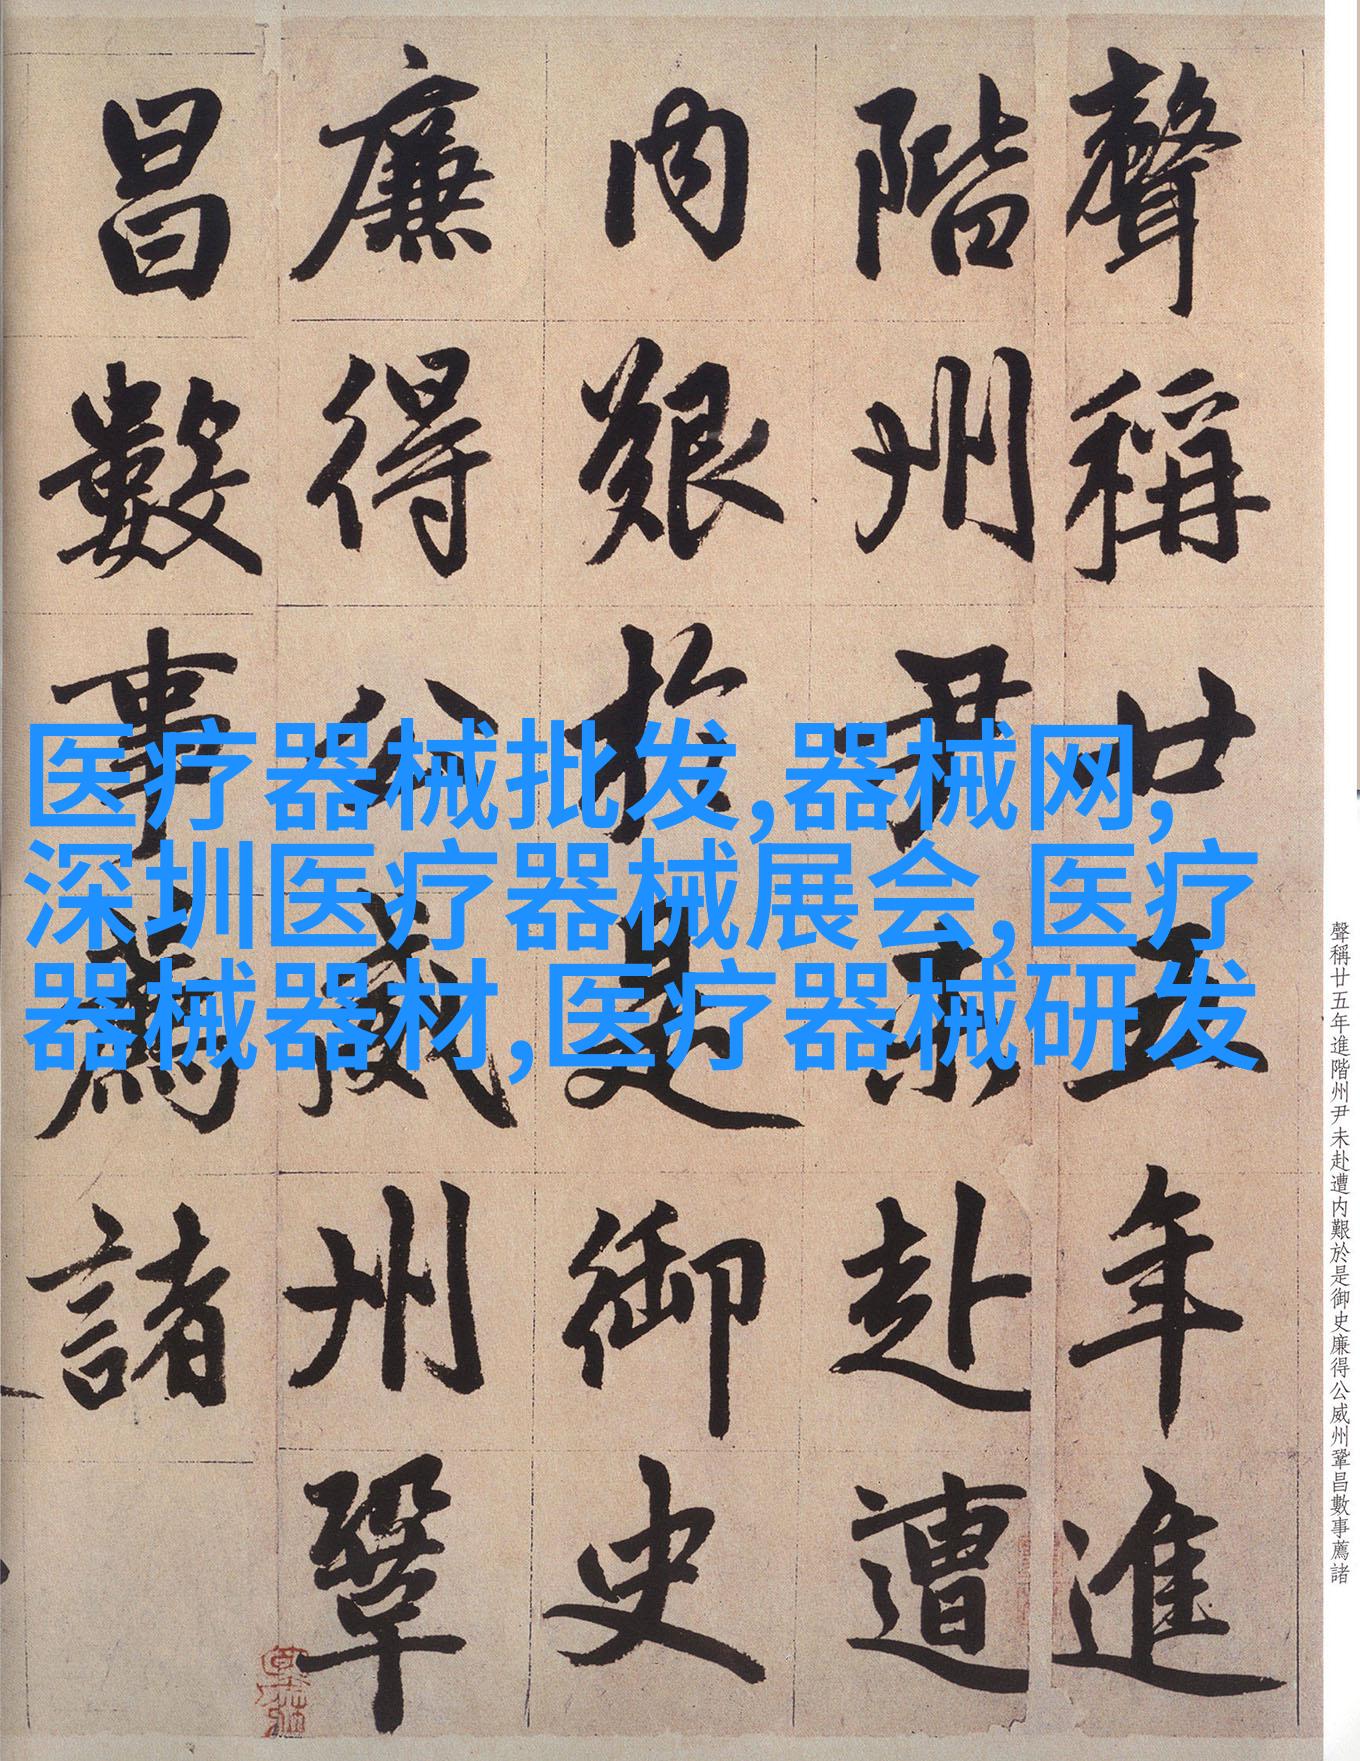 聲稱廿五年進
階州尹未赴遭
内艱於是御史
廉得公威州鞏
昌數事薦諸
医疗器械批发,器械网,
深圳医疗器械展会,医疗
器械器材,医疗器械研发
聲稱廿五年進階州尹未赴遭内艱於是御史廉得公威州鞏昌數事薦諸